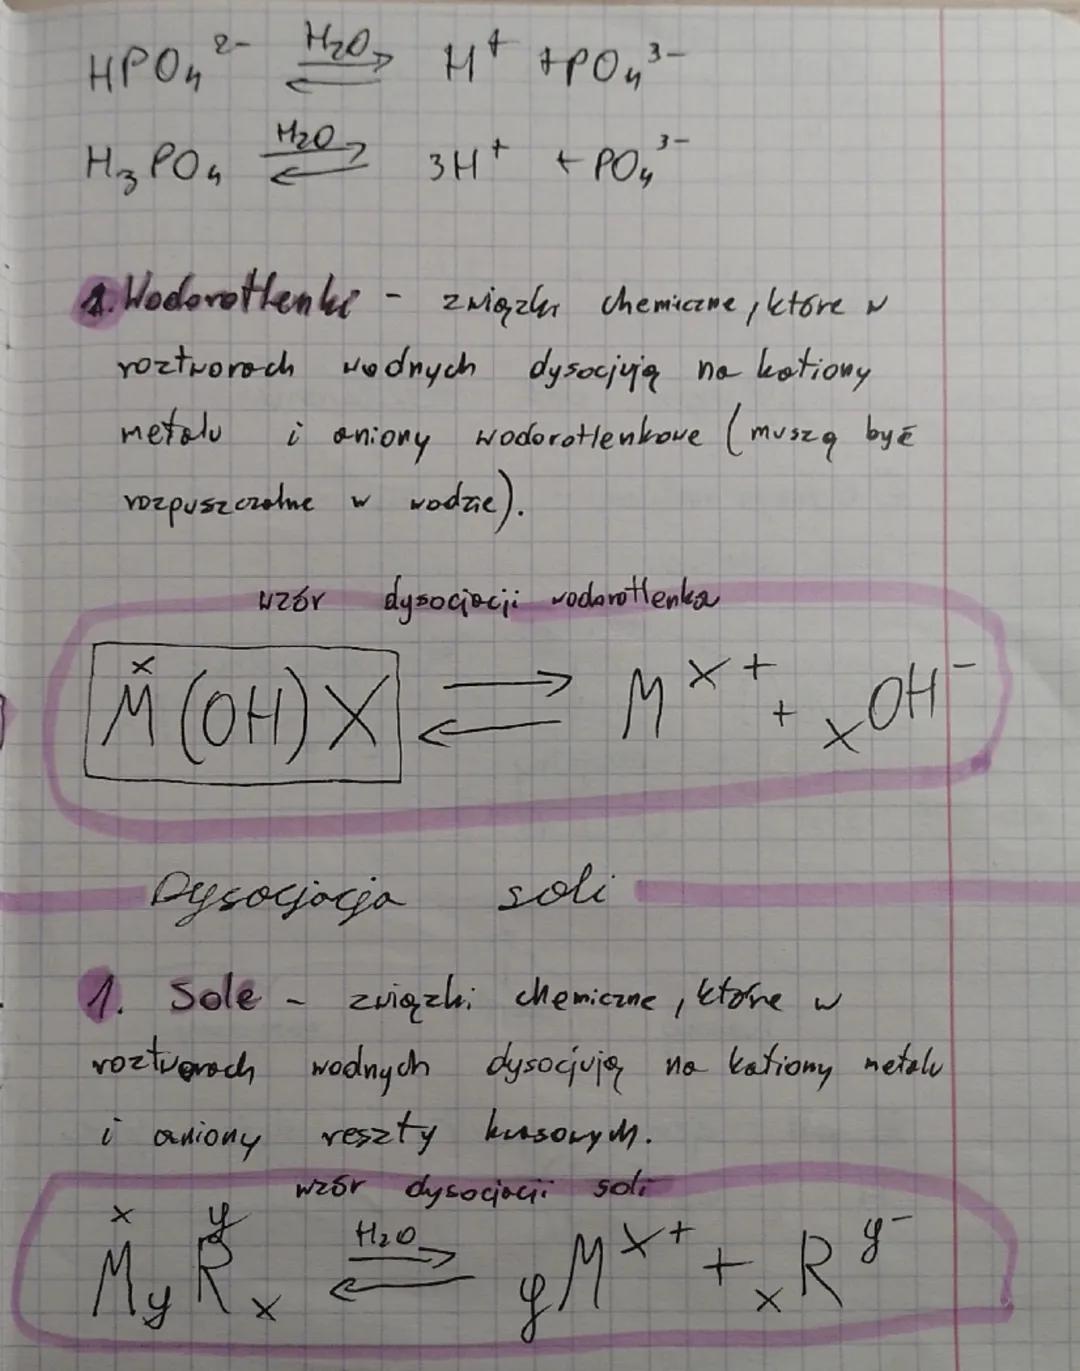 HPO₄²⁻ ⇌ (H₂O) H⁺ + PO₄³⁻
H₃PO₄ ⇌ (H₂O) 3H⁺ + PO₄³⁻
1. Wodorotlenki - związki chemiczne, które w
roztworach wodnych dysocjują na kationy
metalu i aniony wodorotlenkowe (muszą być
rozpuszczalne w wodzie).
wzór dysocjacji wodorotlenka
x
M(OH)X ⇌ Mˣ⁺ + ₓOH⁻
Dysocjacja soli
1. Sole - związki chemiczne, które w
roztworach wodnych dysocjują na kationy metalu
i aniony reszty kwasowych.
wzór dysocjacji soli
x y
MyRx ⇌ (H₂O) yMˣ⁺ + ₓRʸ⁻